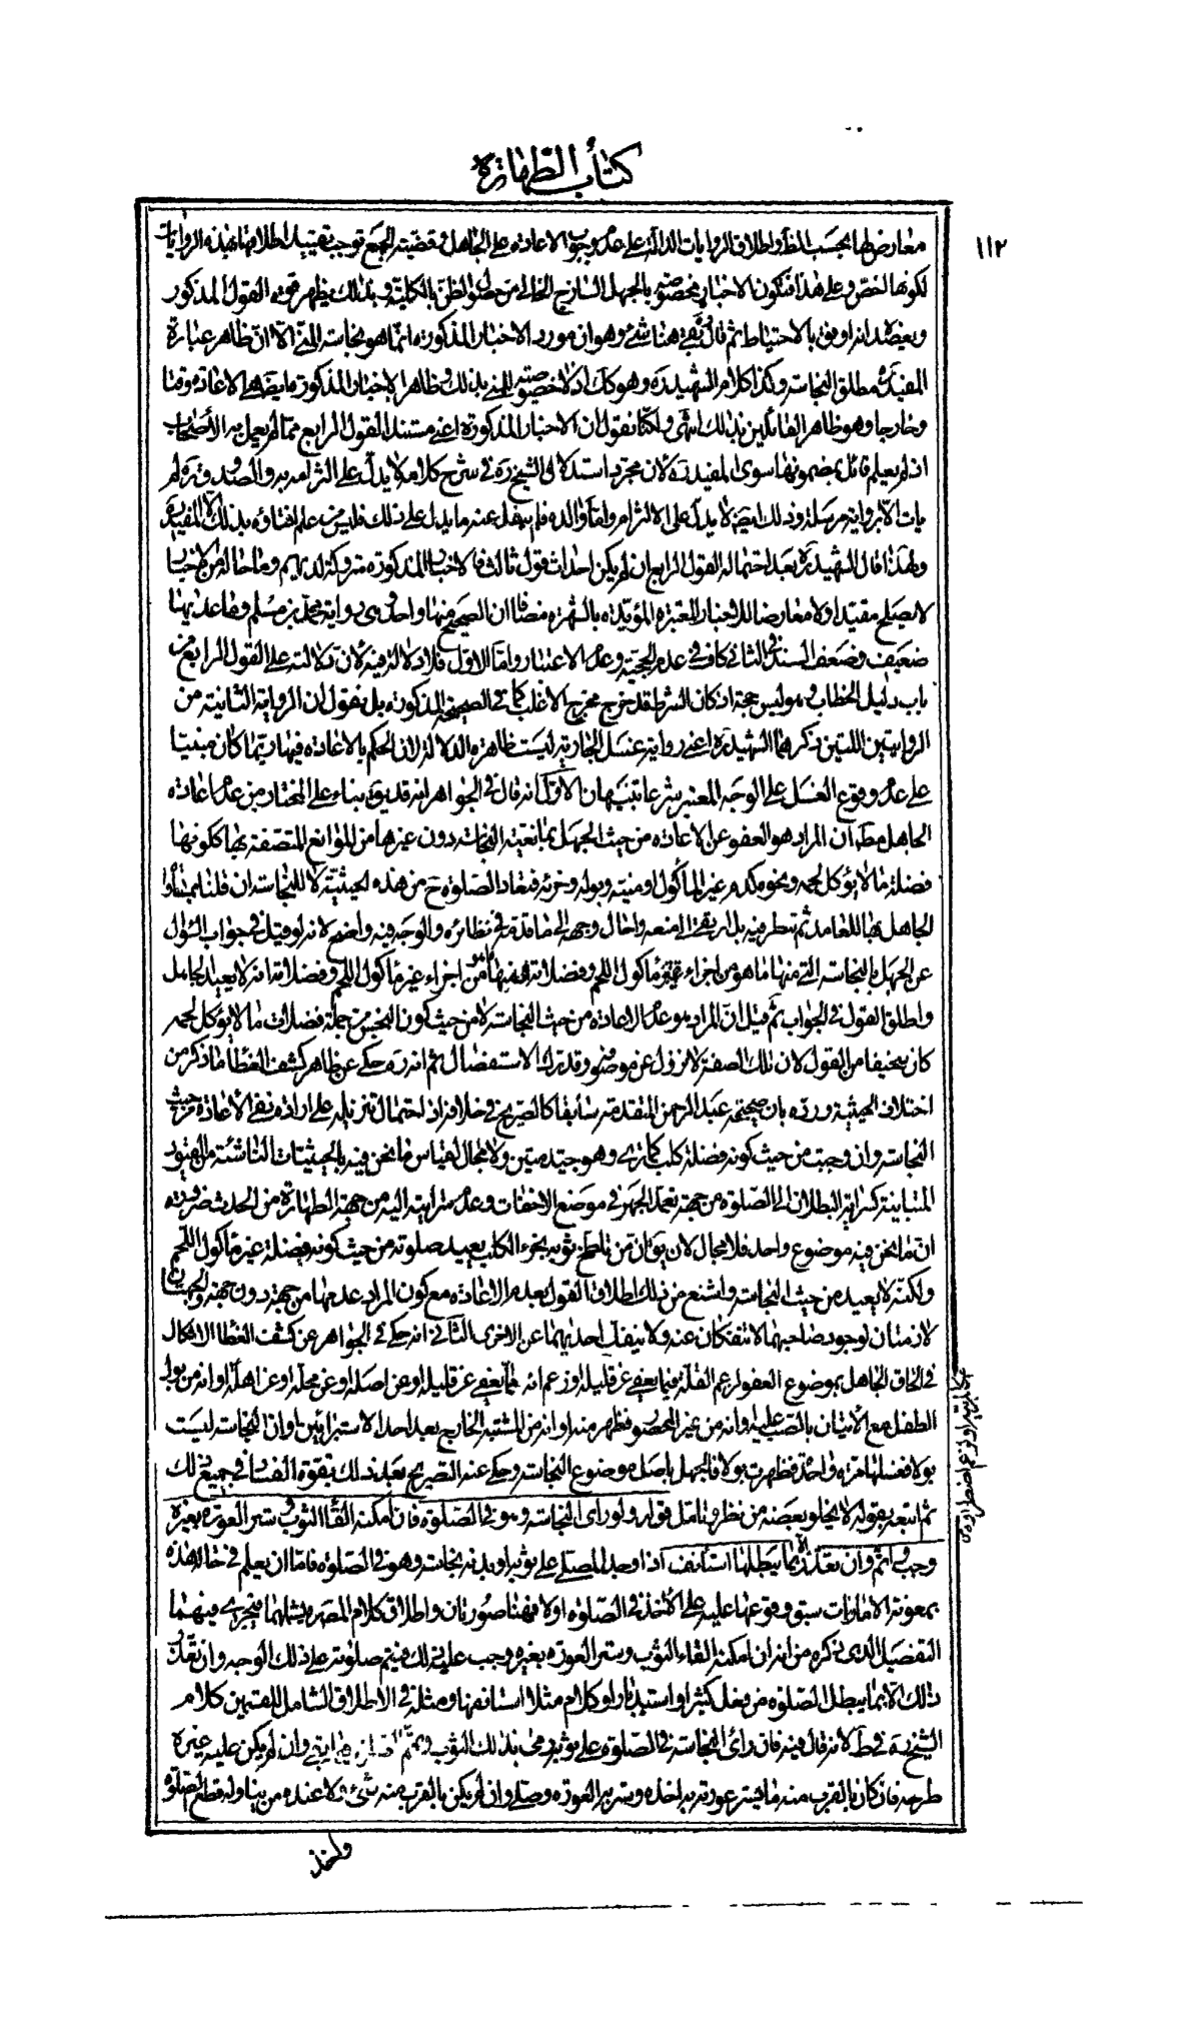 كتاب الطهارة
١١٢
معارضها بحسب المظ واطلاق الروايات الدالة على عدم وجوب الاعادة على الجاهل وقضية الجمع توجب تقييد اطلاقها بهذه الروايات
لكونها اخص وعلى هذا فتكون الاخبار مخصوصة بالجهل الساذج الخالى من حصول الظن بالكلية وبذلك يظهر قوة القول المذكور
ويعضده انه اوفق بالاحتياط ثم قال بقى هنا شئ وهو ان مورد الاخبار المذكورة انما هو نجاسة المنى الا ان ظاهر عبارة
المفيد ره مطلق النجاسة وكذا كلام الشهيد ره وهو كك اذ لا خصوصية للمنى بذلك وظاهر الاخبار المذكورة ايضا هو الاعادة وقتا
وخارجا وهو ظاهر القائلين بذلك انتهى ولكنا نقول ان الاخبار المذكورة اعنى مستند القول الرابع مما لم يعمل به الأصحاب
اذ لم يعلم قائل بمضمونها سوى المفيد ره لان مجرد استدلال الشيخ ره فى شرح كلامه لا يدل على التزامه به والصدوق ره لم
يات الا برواية مرسلة وذلك ايضا لا يدل على الالتزام واما والده فلم ينقل عنه ما يدل على ذلك فليس من علم افتاؤه بذلك الا المفيد ره
ولهذا قال الشهيد ره بعد احتماله القول الرابع ان لم يكن احداث قول ثالث فالاخبار المذكورة متروكة لديهم وما حاله من الاخبار
لا يصلح مقيدا ولا معارضا للاخبار المعتبرة المؤيدة بالشهرة مضافا ان الصحيح منها واحد وهى رواية محمد بن مسلم وما عداها
ضعيف وضعف السند فى الثانى كاف فى عدم الحجية وعدم الاعتبار واما الاول فلا دلالة فيه لان دلالته على القول الرابع من
باب دليل الخطاب وهو ليس حجة اذ كان الشرط قد خرج مخرج الاغلب كما فى الصحيحة المذكورة بل نقول ان الرواية الثانية من
الروايتين اللتين ذكرهما الشهيد ره اعنى رواية غسل الجارية ليست ظاهرة الدلالة لان الحكم بالاعادة فيها ربما كان مبنيا
على عدم وقوع الغسل على الوجه المعتبر شرعا تنبيهان الاول انه قال فى الجواهر انه قد يق بناء على المختار من عدم اعادة
الجاهل مط ان المراد هو العفو عن الاعادة من حيث الجهل بمانعية النجاسة دون غيرها من الموانع المتصفة بها ككونها
فضلة ما لا يؤكل لحمه ونحوه كدم غير المأكول او منيه وبوله وخرئه فتعاد الصلوة ح من هذه الحيثية لا للنجاسة ان قلنا
الجاهل بها للعامد ثم تنظر فيه بل ارتقى الى منعه واحال وجهه الى ما قدمه فى نظائره والوجه فيه واضح لانه لو قيل فى جواب السؤال
عن الجهل بالنجاسة التى منها ما هو من اجزاء مأكول اللحم وفضلاته ومنها ما هو من اجزاء غير مأكول اللحم وفضلاته انه لا يعيد الجاهل
واطلق القول فى الجواب ثم قيل ان المراد هو عدم الاعادة من حيث النجاسة لا من حيث كون النجس من جملة فضلات ما لا يؤكل لحمه
كان سخيفا من القول لان تلك الصفة لا تزول عن موضوعه وقد ترك الاستفصال ثم انه ره حكى عن ظاهر كشف الغطاء ما ذكر من
اختلاف الحيثية ورده بان صحيحة عبد الرحمن المتقدمة سابقا كالصريح فى خلافه اذ احتمال تنزيله على ارادة نفى الاعادة من حيث
النجاسة وان وجبت من حيث كونه فضلة كلب كما ترى وهو جيد متين ولا مجال لقياس ما نحن فيه بالحيثيات الناشئة من القيود
المتباينة كسراية البطلان الى الصلوة من جهة تعمد الجهر فى موضع الاخفات وعدم سرايته اليه من جهة الطهارة من الحدث ضرورة
ان ما نحن فيه موضوع واحد فلا مجال لان يق ان من تلطخ ثوبه بخرء الكلب يعيد صلوته من حيث كونه فضلة غير مأكول اللحم
ولكنه لا يعيد من حيث النجاسة واشنع من ذلك اطلاق القول بعدم الاعادة مع كون المراد عدمها من جهة دون جهة والجهتان
لازمتان لوجود صاحبهما لا تنفكان عنه ولا ينفك احديهما عن الاخرى الثانى انه حكى فى الجواهر عن كشف الغطاء الاشكال
فى الحاق الجاهل بموضوع العفو لزعم القلة فيما يعفى عن قليله او زعم انه مما يعفى عن قليله او عن اصله او عن محله او عن اهله او انه من بول
الطفل مع الاتيان بالصب عليه وانه من غير المحصور فظهر منه او انه من المشتبه الخارج بعد احد الاستبرائين او ان النجاسة ليست
بولا فغسلها مرة واحدة فظهرت بولا فالجهل باصل موضوع النجاسة وحكى عنه التصريح بعد ذلك بقوة الفساد فى جميع ذلك
ثم اتبعه بقوله لا يخلو بعضه من نظر وتامل قوله ولو راى النجاسة وهو فى الصلوة فان امكنه القاء الثوب وستر العورة بغيره
وجب واتم وان تعذر الا بما يبطلها استأنف اذا وجد المصلى على ثوبه او بدنه نجاسة وهو فى الصلوة فاما ان يعلم فى حاله هذه
بمعونة الامارات سبق وقوعها عليه على الأخذ فى الصلوة اولا فهنا صورتان واطلاق كلام المصنف ره يشملهما فيجرى فيهما
التفصيل الذى ذكره من انه ان امكنه القاء الثوب وستر العورة بغيره وجب عليه ذلك فيتم صلوته على ذلك الوجه وان تعذر
ذلك الا بما يبطل الصلوة من فعل كثير او استدبار او كلام مثلا استانفها ومثله فى الاطلاق الشامل للقسمين كلام
الشيخ ره فى ط لانه قال فيه فان رأى النجاسة فى الصلوة على ثوبه رمى بذلك الثوب وتمم الصلوة فيما بقى وان لم يكن عليه غيره
طرحه فان كان بالقرب منه ما يستر عورته به اخذه وستر به العورة وصلى وان لم يكن بالقرب منه شئ ولا عنده من يناوله قطع الصلوة
واخذ